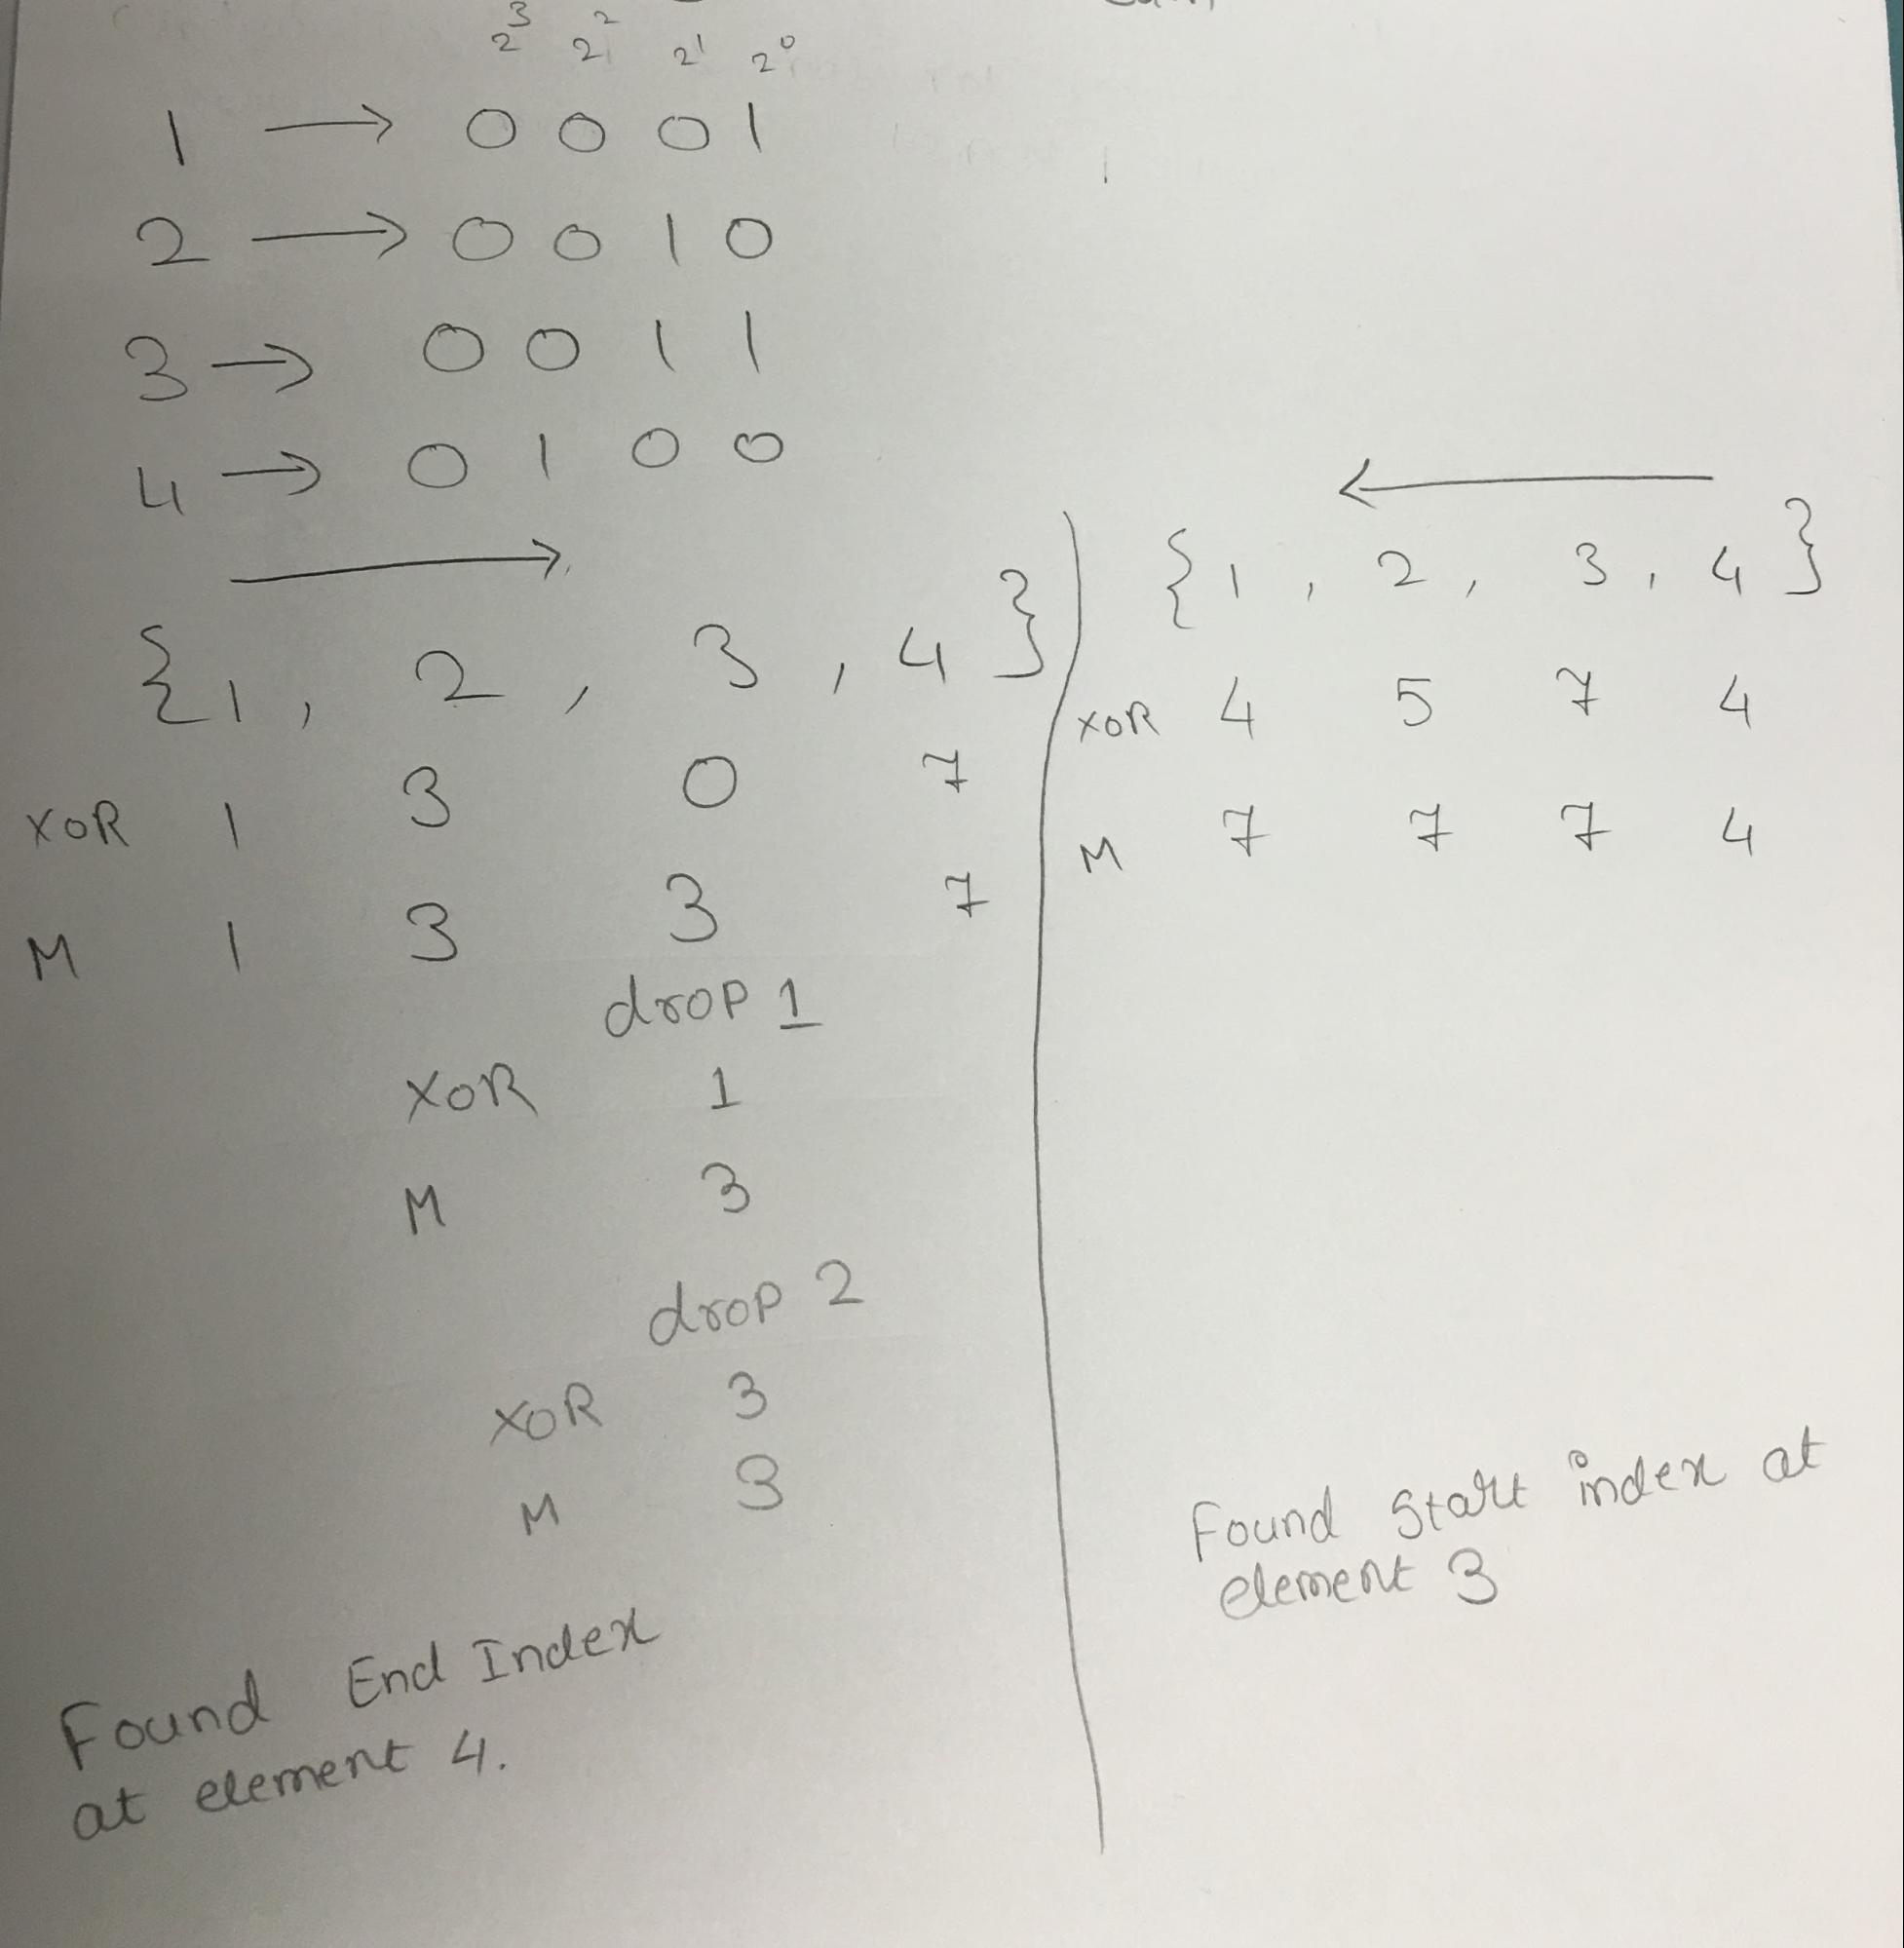 2³ 2² 2¹ 2⁰
1 → 0 0 0 1
2 → 0 0 1 0
3 → 0 0 1 1
4 → 0 1 0 0
→
{ 1 , 2 , 3 , 4 }
XOR 1 3 0 7
M 1 3 3 7
drop 1
XOR 1
M 3
drop 2
XOR 3
M 3
Found End Index
at element 4.
←
{ 1 , 2 , 3 , 4 }
XOR 4 5 7 4
M 7 7 7 4
Found Start index at
element 3